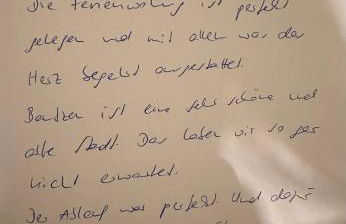 Die Ferienwohnung ist perfekt
gelegen und mit allem was das
Herz begehrt ausgestattet.
Bautzen ist eine sehr schöne und
alte Stadt. Das haben wir so gar
nicht erwartet.
Der Ablauf war perfekt. Und dafür